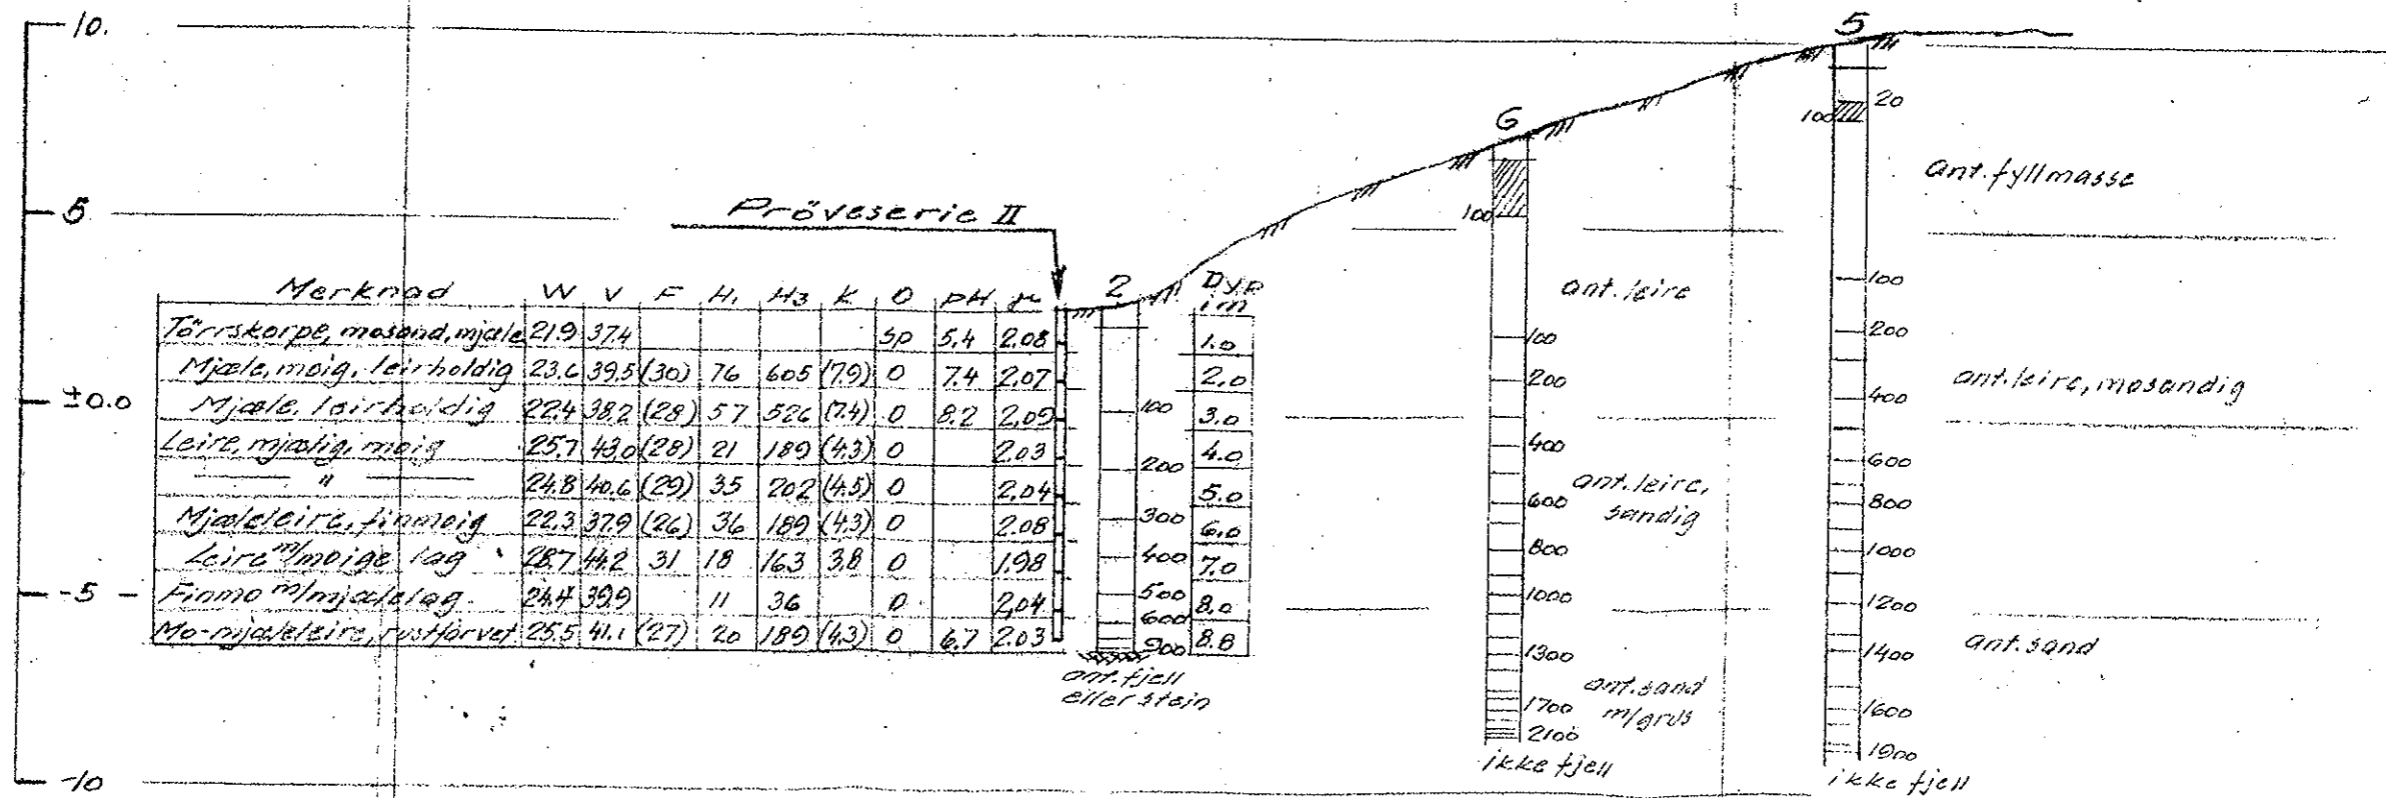 10.
5
±0.0
-5
-10
Pröveserie II
Merknad W V F H1 H3 K O pH γ
Törrskorpe, mosand, mjæle 21.9 37.4 sp 5.4 2.08
Mjæle, moig, leirholdig 23.6 39.5 (30) 76 605 (7.9) 0 7.4 2.07
Mjæle, leirholdig 22.4 38.2 (28) 57 526 (7.4) 0 8.2 2.09
Leire, mjælig, moig 25.7 43.0 (28) 21 189 (4.3) 0 2.03
— " — 24.8 40.6 (29) 35 202 (4.5) 0 2.04
Mjæleleire, finmoig 22.3 37.9 (26) 36 189 (4.3) 0 2.08
Leire m/moige lag 28.7 44.2 31 18 163 3.8 0 1.98
Finmo m/mjælelag 24.4 39.9 11 36 0 2.04
Mo-mjæleleire, rustfarvet 25.5 41.1 (27) 20 189 (4.3) 0 6.7 2.03
2
100
200
300
400
500
600
900
ant. fjell
eller stein
Dyp
i m
1.0
2.0
3.0
4.0
5.0
6.0
7.0
8.0
8.8
6
100
100
200
400
600
800
1000
1300
1700
2100
ikke fjell
ant. leire
ant. leire,
sandig
ant. sand
m/grus
5
20
100
100
200
400
600
800
1000
1200
1400
1600
1900
ikke fjell
ant. fyllmasse
ant. leire, mosandig
ant. sand